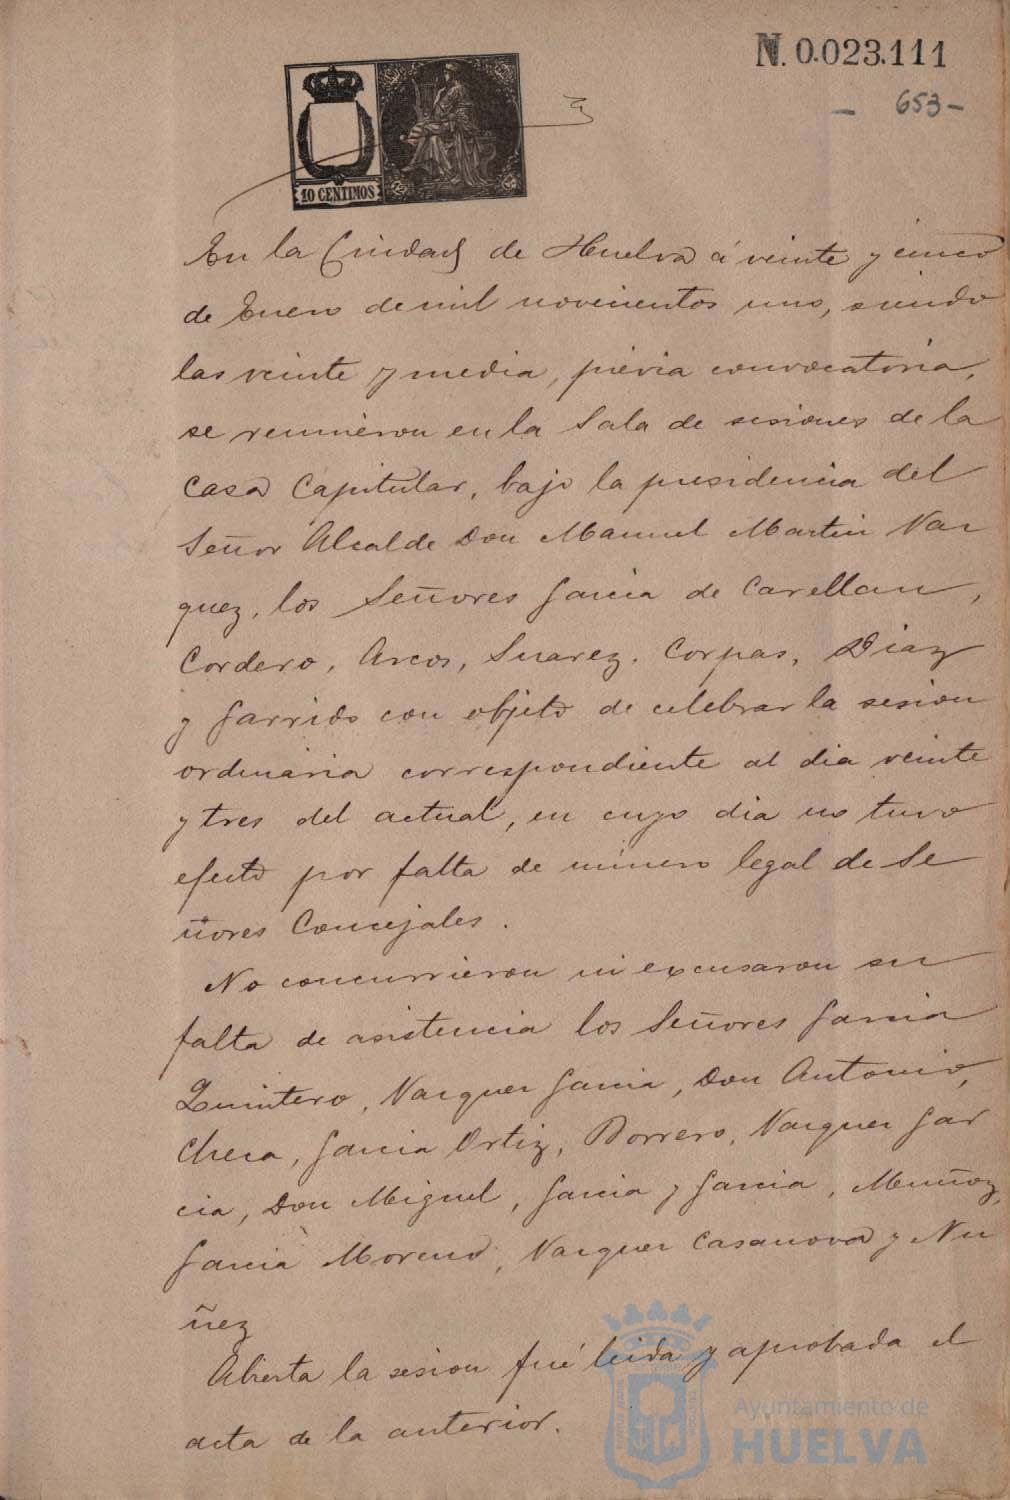 N. 0.023.111
- 653 -
10 CENTIMOS
En la Ciudad de Huelva á veinte y cinco
de Enero de mil novecientos uno, siendo
las veinte y media, prévia convocatoria,
se reunieron en la Sala de sesiones de la
Casa Capitular, bajo la presidencia del
Señor Alcalde Don Manuel Martin Vaz
quez, los Señores Garcia de Carellan,
Cordero, Arcos, Suarez, Corpas, Diaz
y Garrido con objeto de celebrar la sesion
ordinaria correspondiente al dia veinte
y tres del actual, en cuyo dia no tuvo
efecto por falta de número legal de Se
ñores Concejales.
No concurrieron ni excusaron su
falta de asistencia los Señores Garcia
Quintero, Vazquez Garcia, Don Antonio,
Checa, Garcia Ortiz, Borrero, Vazquez Gar
cia, Don Miguel, Garcia y Garcia, Muñoz,
Garcia Moreno, Vazquez Casanova y Nu
ñez
Abierta la sesion fué leida y aprobada el
acta de la anterior.
Ayuntamiento de
HUELVA